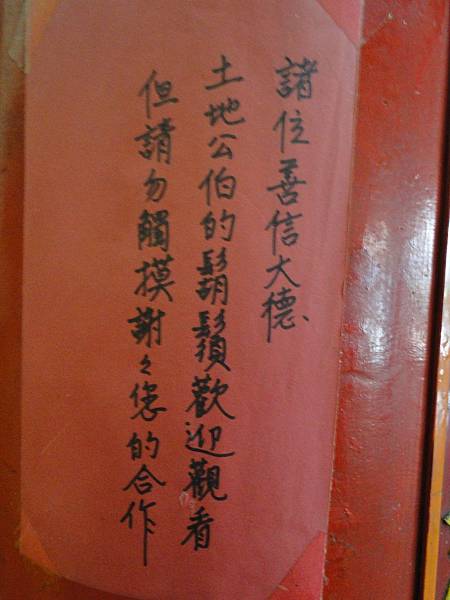 諸位善信大德、
土地公伯的鬍鬚歡迎觀看
但請勿觸摸謝々您的合作